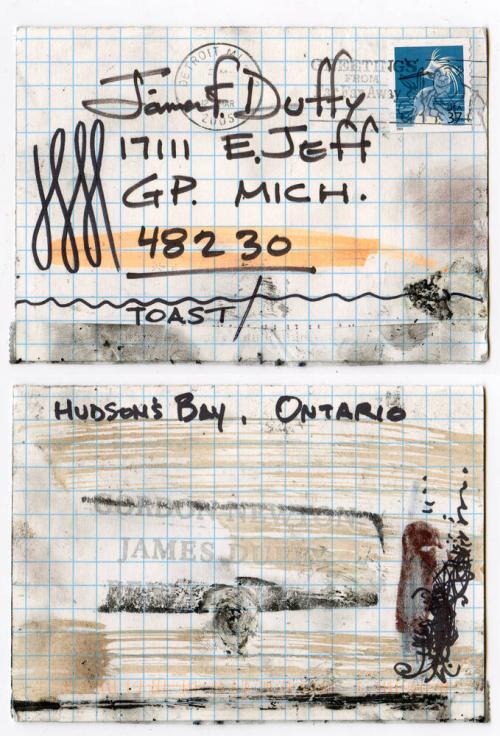 DETROIT MI
MAR
2005
GREETINGS
FROM
Far Away
USA
37
James F. Duffy
17111 E. Jeff
GP. MICH.
48230
TOAST/
HUDSON'S BAY, ONTARIO
GORDON NEWTON
JAMES DUFFY